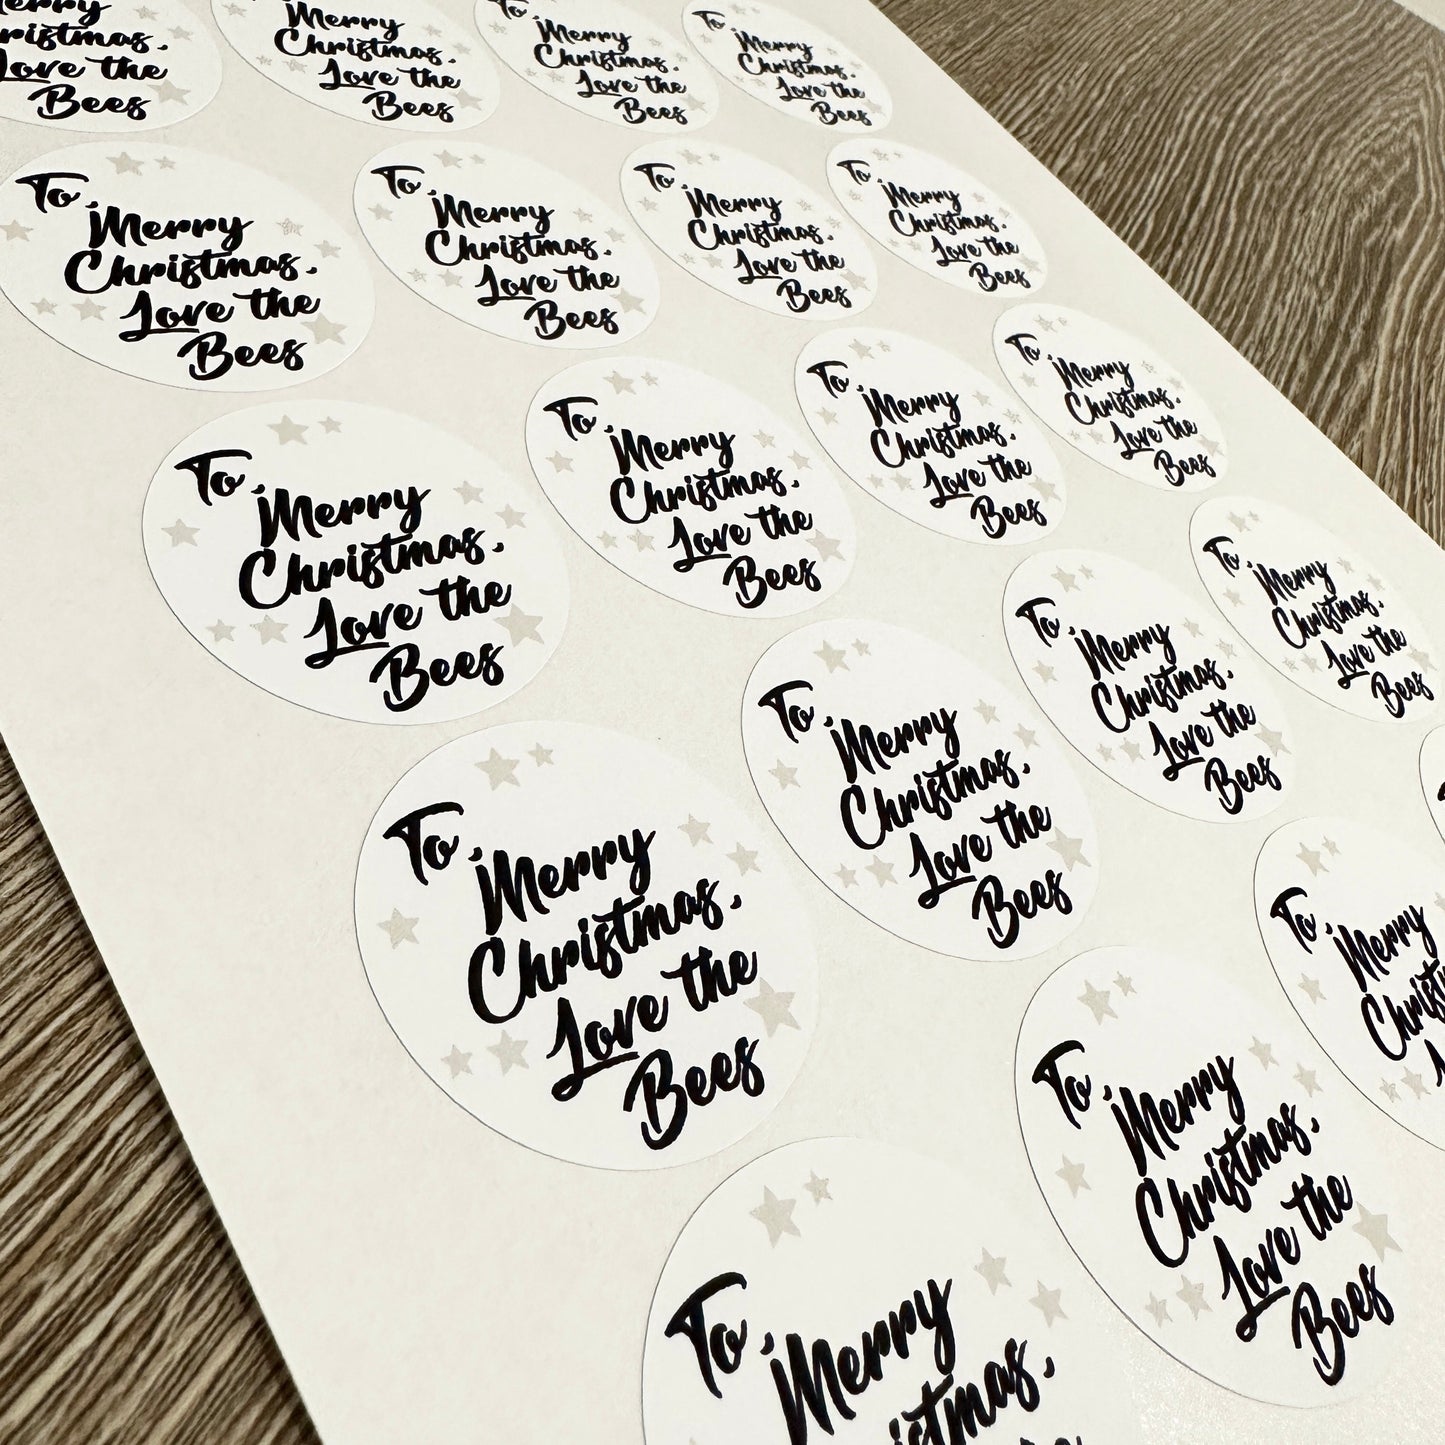 Merry
ristmas,
Love the
Bees
Merry
Christmas,
Love the
Bees
To,
Merry
Christmas,
Love the
Bees
To,
Merry
Christmas,
Love the
Bees
To,
Merry
Christmas,
Love the
Bees
To,
Merry
Christmas,
Love the
Bees
To,
Merry
Christmas,
Love the
Bees
To,
Merry
Christmas,
Love the
Bees
To,
Merry
Christmas,
Love the
Bees
To,
Merry
Christmas,
Love the
Bees
To,
Merry
Christmas,
Love the
Bees
To,
Merry
Christmas,
Love the
Bees
To,
Merry
Christmas,
Love the
Bees
To,
Merry
Christmas,
Love the
Bees
To,
Merry
Christmas,
Love the
Bees
To,
Merry
Christmas,
Love the
Bees
To,
Merry
To,
Merry
Christmas,
Love the
Bees
To,
Merry